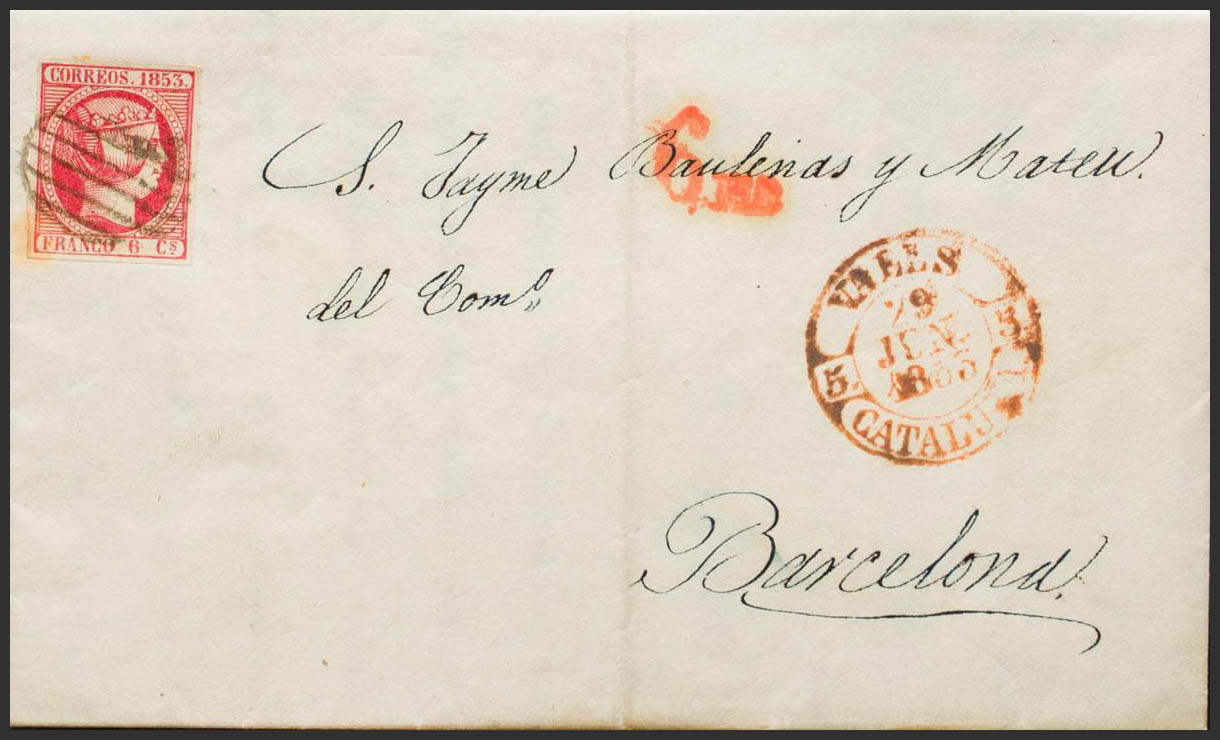 CORREOS. 1853.
FRANCO 6 Cs
S. Jayme Bauleñas y Mateu.
del Comº
VALLS
29
JUN
1853
5
5
CATALU
Barcelona.